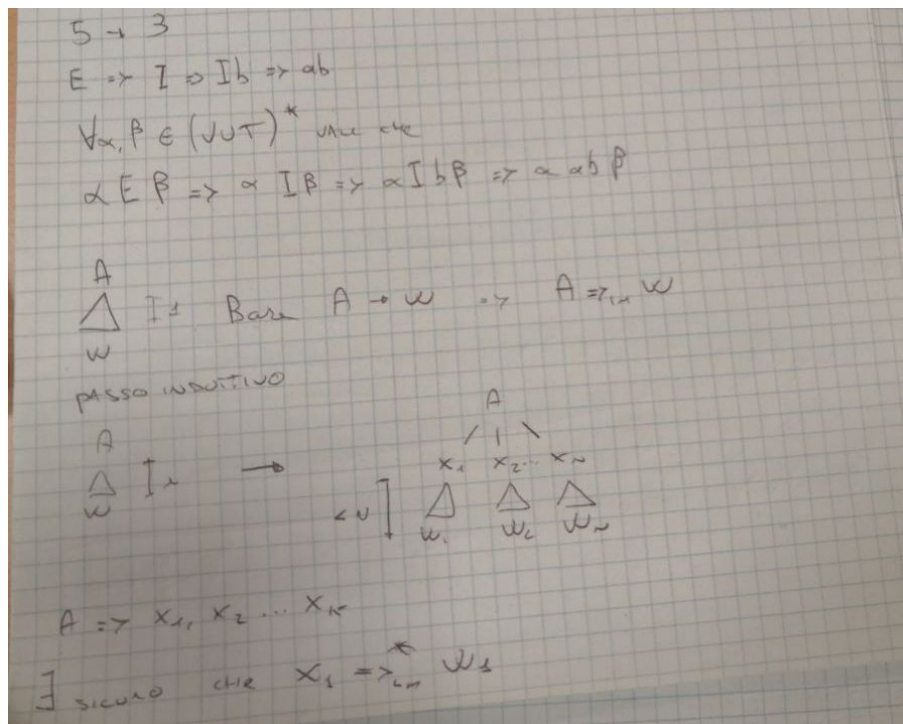 5 → 3
E => I => Ib => ab
∀α, β ∈ (VUT)* VALE CHE
α E β => α I β => α I b β => α ab β
A
W
I 1 Base A → W => A =>lm W
PASSO INDUTTIVO
A
A
x1 x2... xn
W
→
< N
W1 W2 Wn
A => x1, x2 ... xK
∃ SICURO CHE X1 =>*lm W1